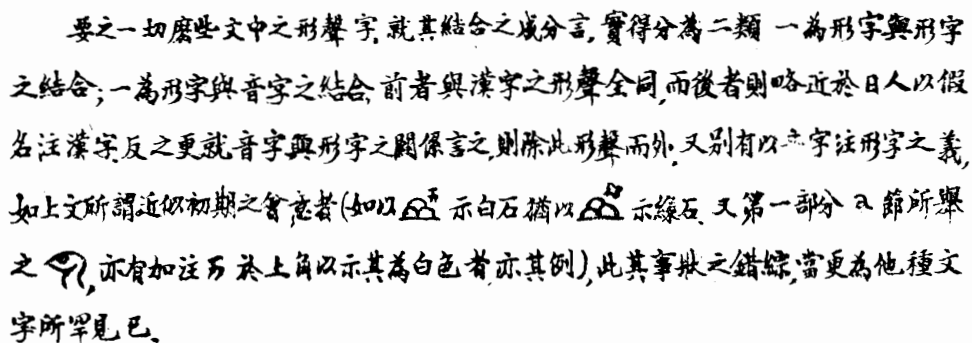 要之一切麼些文中之形聲字,就其結合之成分言,實得分為二類 一為形字與形字
之結合;一為形字與音字之結合,前者與漢字之形聲全同,而後者則略近於日人以假
名注漢字,反之更就音字與形字之關係言之,則除此形聲而外,又別有以音字注形字之義,
如上文所謂近似初期之會意者(如以 示白石猶以 示綠石,又第一部分 a 節所舉
之 ,亦有加注 於上角以示其為白色者亦其例),此其事狀之錯綜,當更為他種文
字所罕見已。